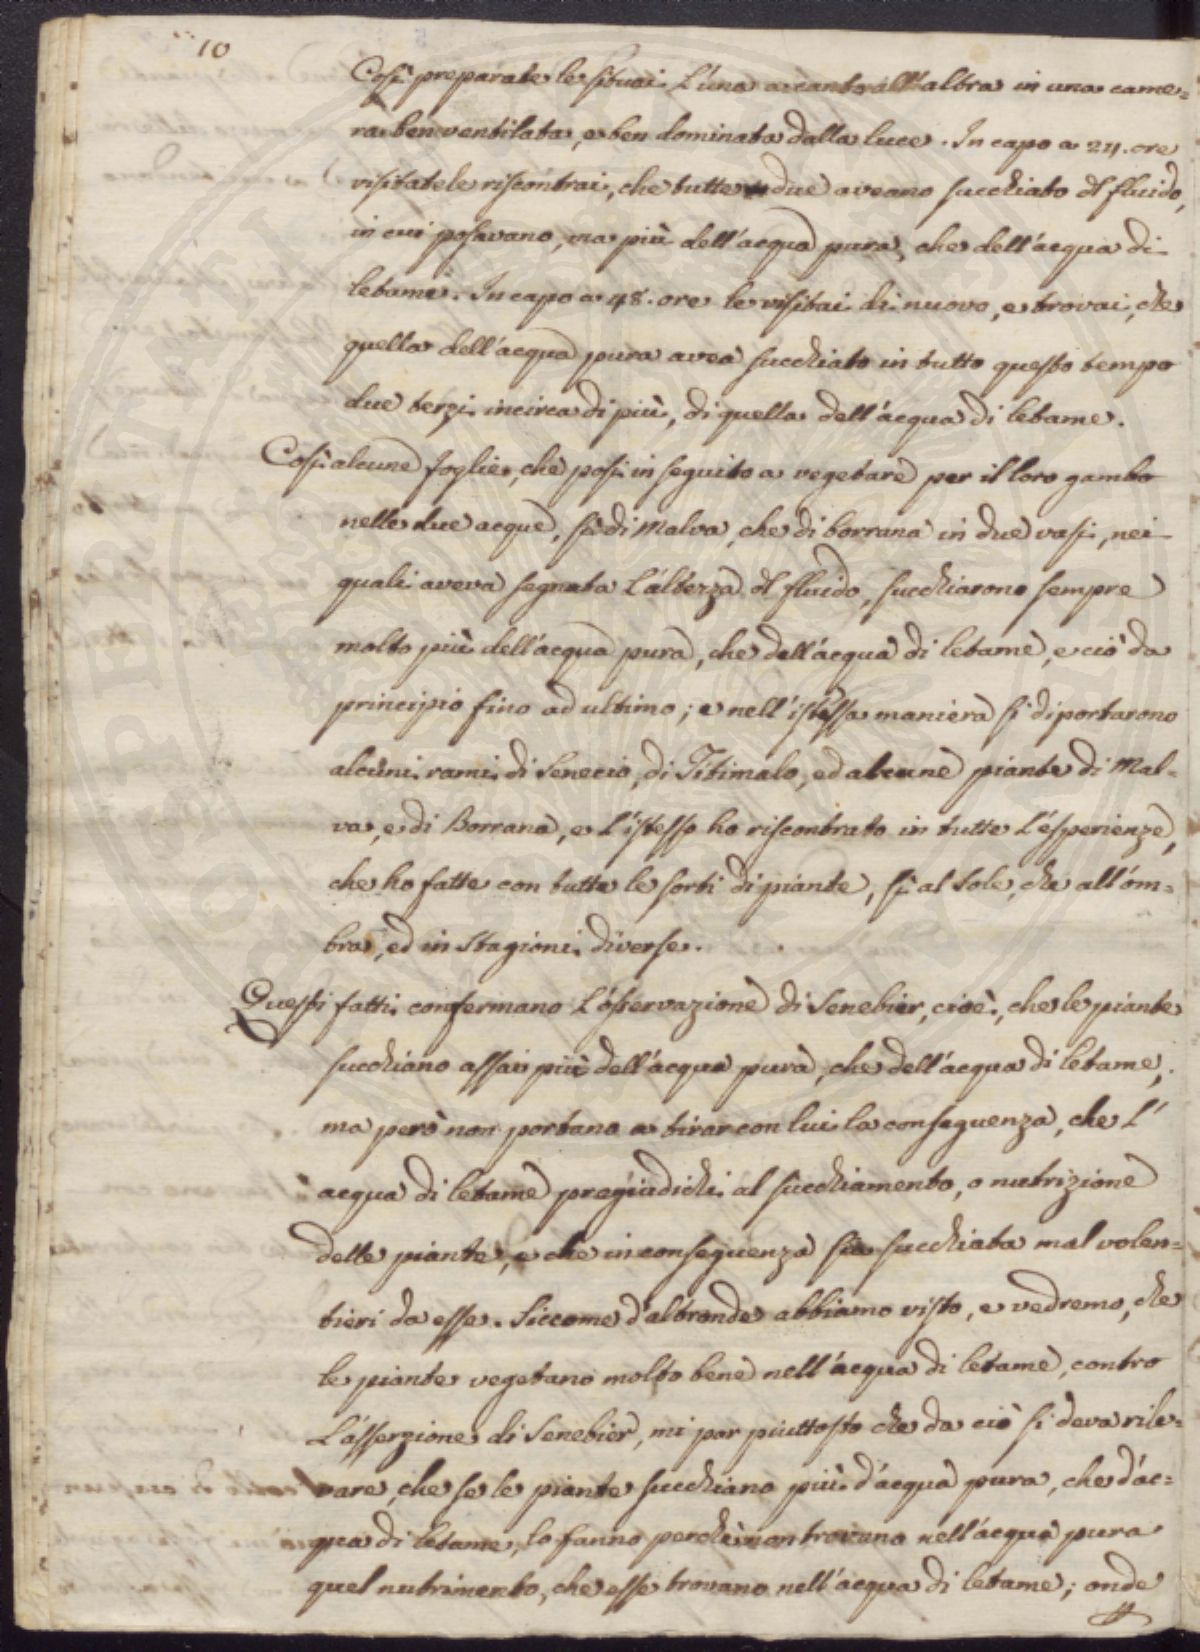 10
Così preparate le situai l'una accanto all'altra in una came=
ra ben ventilata, e ben dominata dalla luce. In capo a 24. ore
visitatele riscontrai, che tutte due aveano succhiato il fluido,
in cui posavano, ma più dell'acqua pura, che dell'acqua di
letame. In capo a 48. ore le visitai di nuovo, e trovai, che
quella dell'acqua pura avea succhiato in tutto questo tempo
due terzi incirca di più, di quella dell'acqua di letame.
Così alcune foglie, che posi in seguito a vegetare per il loro gambo
nelle due acque, sì di Malva, che di borrana in due vasi, nei
quali aveva segnata l'altezza del fluido, succhiarono sempre
molto più dell'acqua pura, che dell'acqua di letame, e ciò da
principio fino ad ultimo; e nell'istessa maniera si diportarono
alcuni rami di Senecio, di Titimalo, ed alcune piante di Mal=
va, e di Borrana, e l'istesso ho riscontrato in tutte l'esperienze,
che ho fatte con tutte le sorti di piante, sì al Sole, che all'om=
bra, ed in Stagioni diverse.
Questi fatti confermano l'osservazione di Senebier, cioè, che le piante
succhiano assai più dell'acqua pura, che dell'acqua di letame,
ma però non portano a tirar con lui la conseguenza, che l'
acqua di letame pregiudichi al succhiamento, o nutrizione
delle piante, e che in conseguenza sia succhiata mal volen=
tieri da esse. Siccome d'altronde abbiamo visto, e vedremo, che
le piante vegetano molto bene nell'acqua di letame, contro
l'asserzione di Senebier, mi par piuttosto che da ciò si deva rile=
vare, che se le piante succhiano più d'acqua pura, che d'ac=
qua di letame, lo fanno perchè non trovano nell'acqua pura
quel nutrimento, che esse trovano nell'acqua di letame; onde